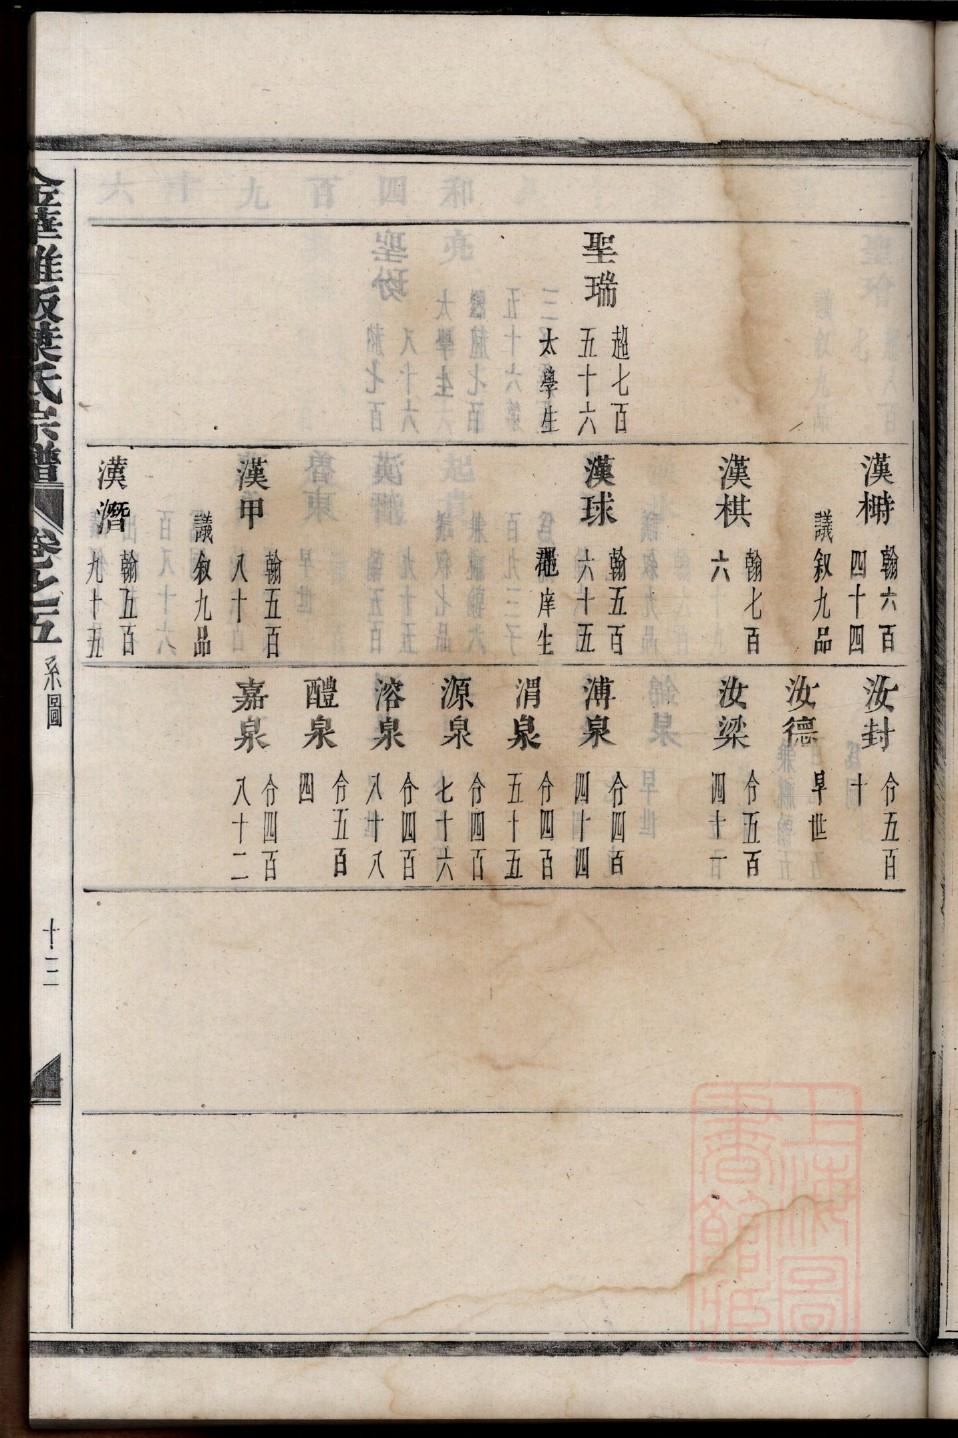 聖瑞
超七百
五十六
太學生
漢樹
翰六百
四十四
議叙九品
漢棋
翰七百
六
漢球
翰五百
六十五
庠生
漢甲
翰五百
八十
議叙九品
漢潛
翰五百
九十五
汝封
合五百
十
汝德
早世
汝梁
合五百
四十一
溥泉
合四百
四十四
渭泉
合四百
五十五
源泉
合四百
七十六
溶泉
合四百
八十八
醴泉
合五百
四
嘉泉
合四百
八十二
金華雅畈葉氏宗譜
卷之五
系圖
十三
上海圖
書館藏